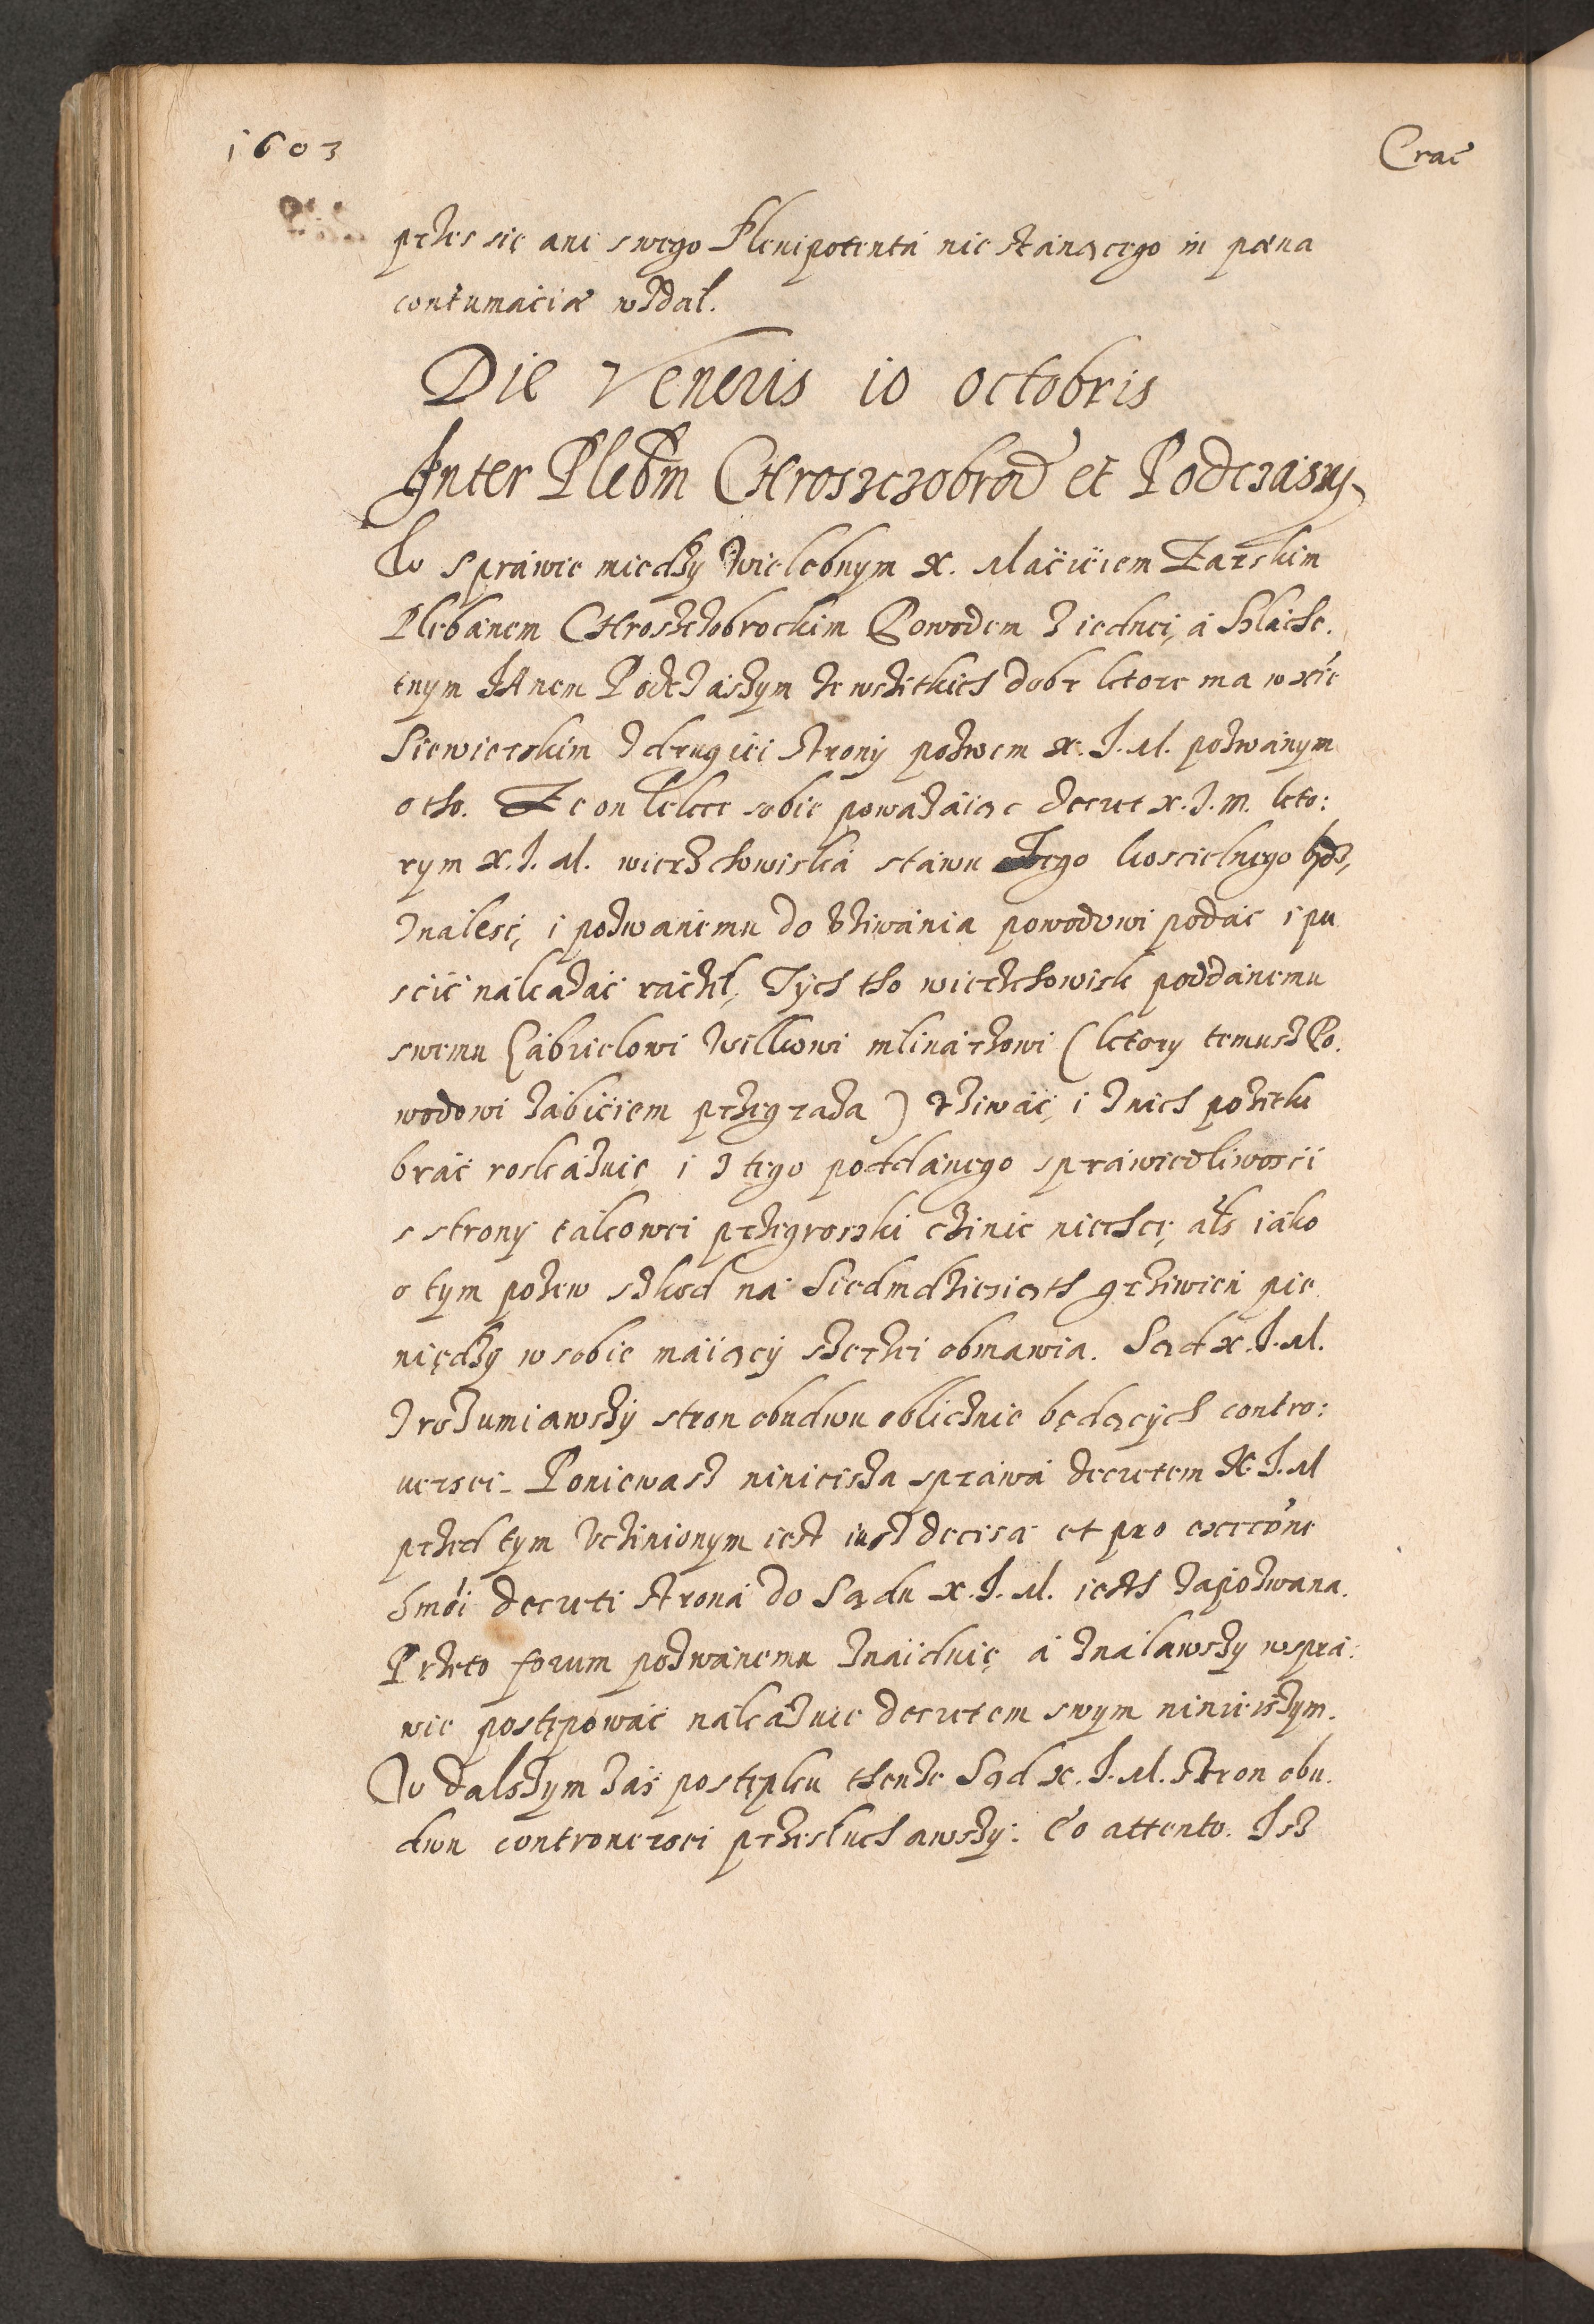 1603
Crac
przes się ani swego Plenipotenta nie stanącego in pœna
contumaciæ wzdał.
Die Veneris 10 octobris
Inter Plebm CHroszczobrod et Podczasy
W sprawie miedzy Wielebnym X. Macieiem Zarskim
Plebanem CHroszczobrockim Powodem z iednei, a Slache.
tnym JAnem Podczaszym ze wszitkich dobr ktore ma w xie
Siewierskim z drugiei strony pozwem X. J. M. pozwanym
o tho. Ze on lekce sobie poważaiąc decret X. J. M. kto:
rym X. J. M. wierzchowiska stawu Jego koscielnego
znalesc, i pozwanemu do vziwania powodowi podac i pu
scic nakazać raczeł, Tych tho wierzchowisk poddanemu
swemu Gabrielowi Wilkowi mlinarzowi (ktory temusz Po.
wodowi zabiciem przegraza) vziwać, i z nich pozitku
brać roskazuie, i z tego poddanego sprawiedliwosci
s strony takowei przegroszki czinic niechce, als iako
o tym pozew szkod na Siedmdziesiąth grziwien pie
niędzy w sobie maiący szerzei obmawia. Sąd X. J. M.
zrozumiawszy stron obudwu oblicznie będących contro:
uersei. Poniewasz ninieisza sprawa decretem X. J. M
przed tym vczinionym iest iusz decisa et pro exeicone
hmoi decreti strona do Sądu X. J. M. iesth zapozwana.
Przeto forum pozwanemu znaiduie, a znalawszy w spra:
wie postępować nakazuie decretem swym ninieiszym.
W dalszym zas postępku thenze Sąd X. J. M. stron obu.
dwu controuersei przesłuchawszy: Eo attento. Isz